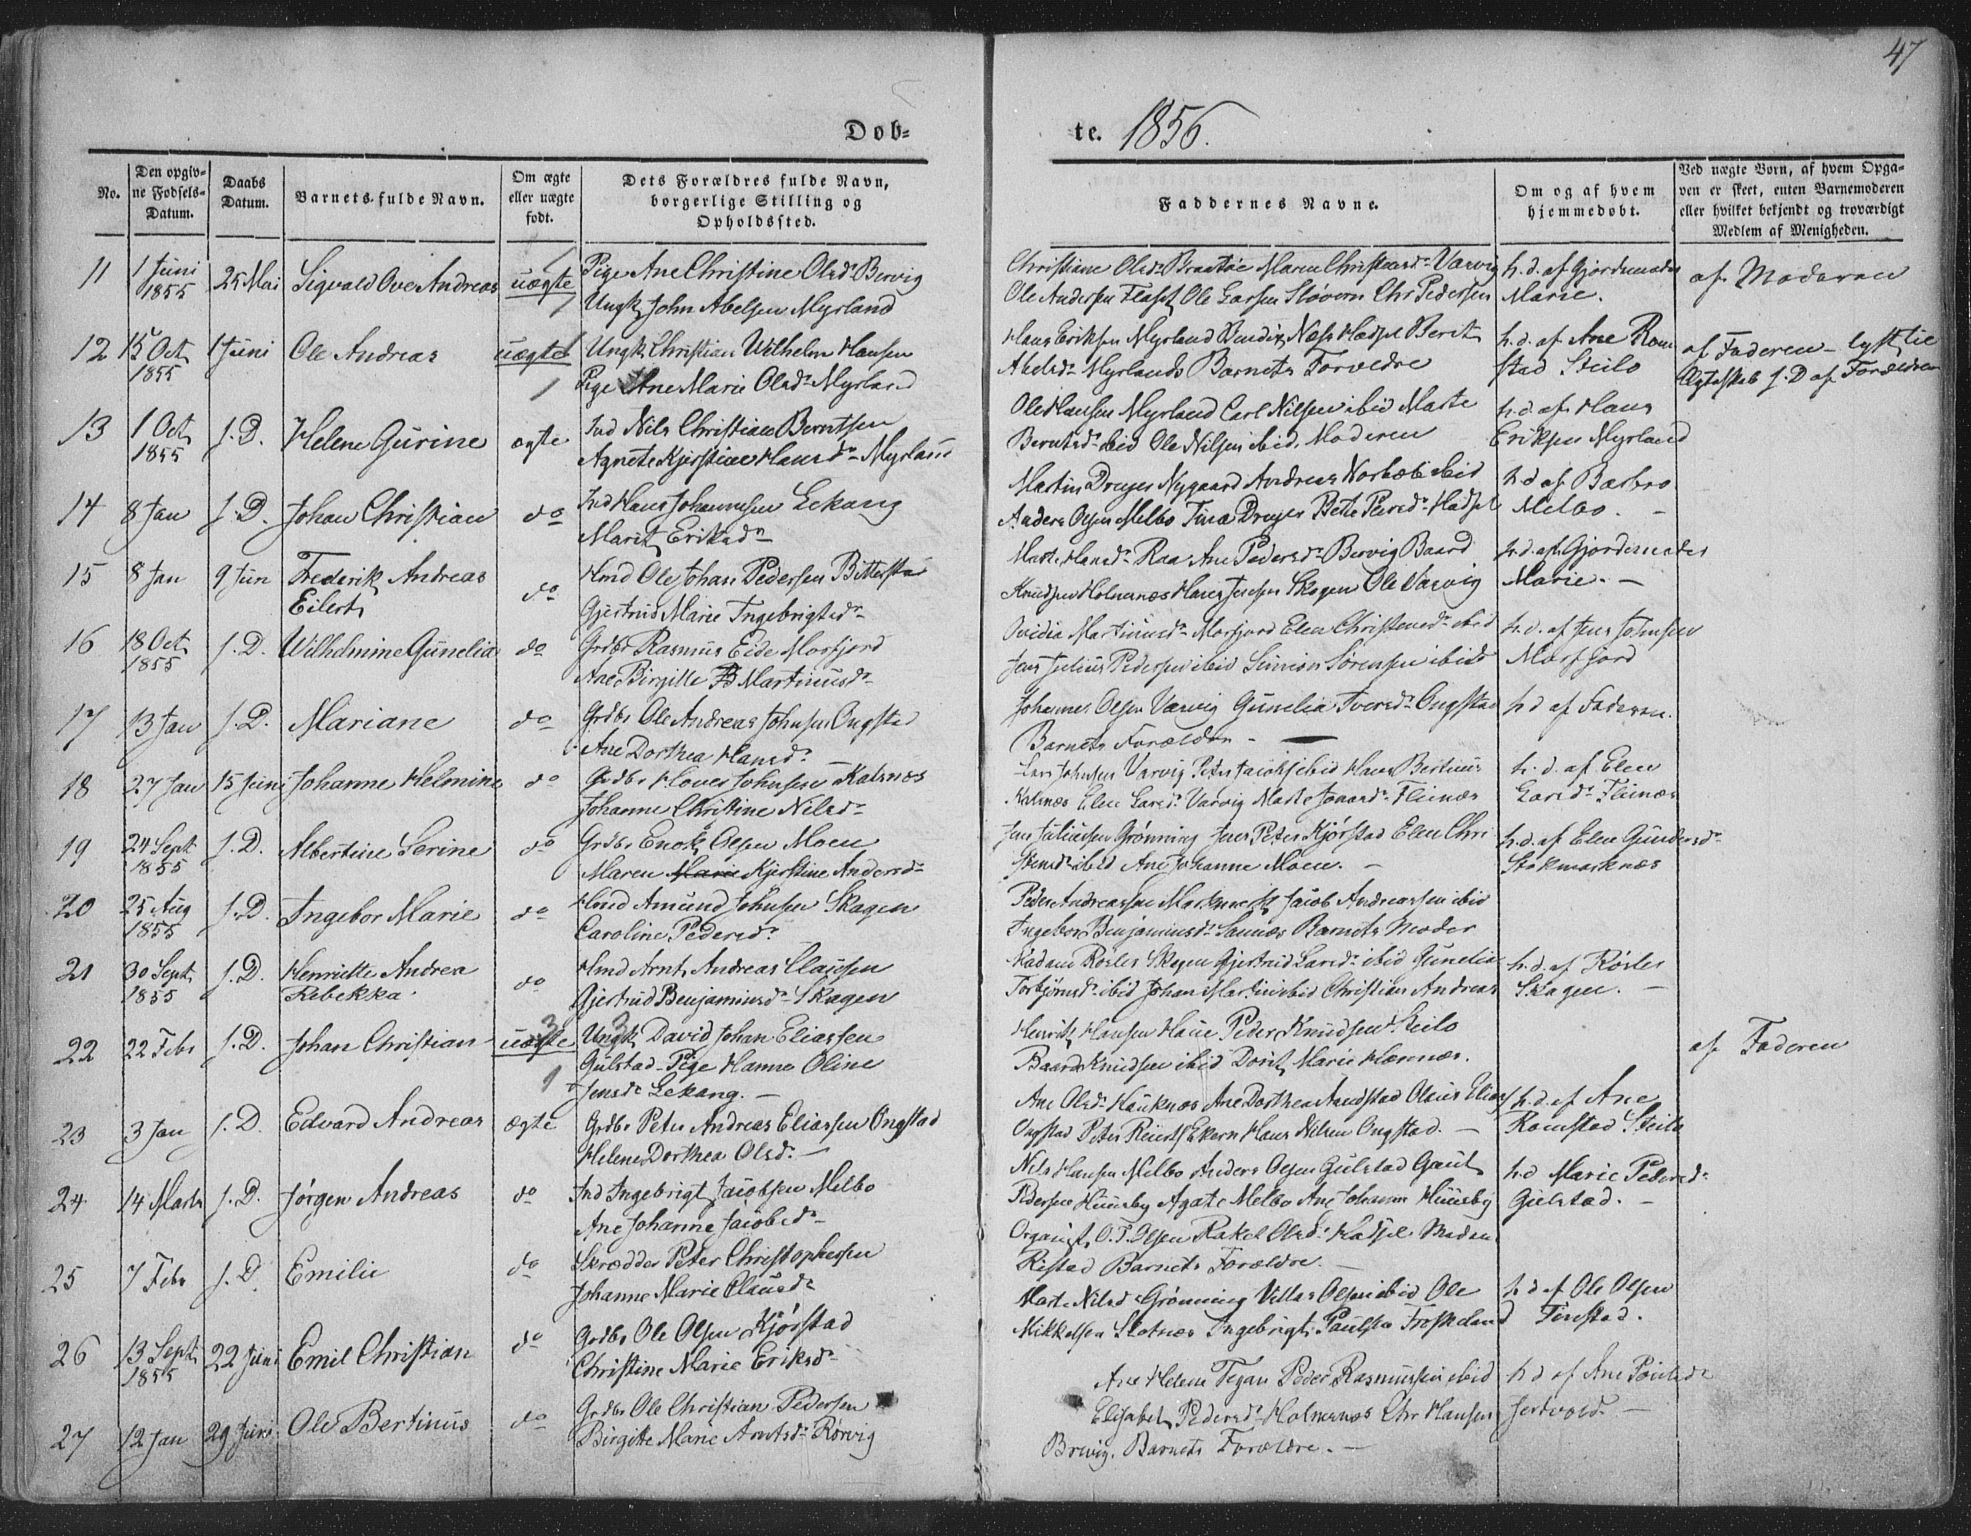 47
Døb-
te. 1856.
No.
Den opgiv-
ne Fødsels-
Datum.
Daabs
Datum.
Barnets fulde Navn.
Om ægte
eller uægte
født.
Dets Forældres fulde Navn,
borgerlige Stilling og
Opholdssted.
Faddernes Navne.
Om og af hvem
hjemmedøbt.
Ved uægte Børn, af hvem Opga-
ven er skeet, enten Barnemoderen
eller hvilket bekjendt og troværdigt
Medlem af Menigheden.
11 1 Juni 25 Mai Sigvald Ove Andreas uægte Pige Ane Christine Olsd. Borvig
1855 Ungk John Abelsen Myrland
Christiane Olsd. Maren Varvig h. d. af Gjordemoder af Moderen
Ole Andersen Ole Larsen Chr Pedersen Marie.
12 15 Oct 1 Juni Ole Andreas uægte Ungk Christian Wilhelm Hansen
1855 Pige Ane Marie Olsd. Myrland
Hans Eriksen Myrland Hadsel Berit h. d. af Ane Rom af Faderen
Abelsd. Myrlands Barnets Forældre stad Steilo Ægteskab s. D af Forældrene
13 1 Oct s. D. Helene Gurine ægte Ind Nils Christian Berntsen
1855 Hansd. Myrland
Ole Hansen Myrland Carl Nilsen ibid Marte h. d. af Hans
Berntsd. ibid Ole Nilsen ibid. Moderen Eriksen Myrland
14 8 Jan s. D. Johan Christian do Ind Hans Johannesen Lekang
Marit Eriksd.
Martin Dreyer Nygaard Andreas ibid h d af Barbro
Anders Olsen Melbo Dreyer Hadsel Melbo.
15 8 Jan 9 Jun Frederik Andreas do Hmd Ole Johan Pedersen Bitterstad
Eilert Gjertrud Marie Ingebrigtsd.
Marte Hansd. Raa Ane Pedersd. Borvig Baard h. d. af Gjordemoder
Knudsen Holmenæs Hans Jensen Skagen Ole Varvig Marie.
16 18 Oct s. D. Wilhelmine Gunelia do Grdbr Rasmus Eide Morfjord
1855 Ane Birgitte Martinusd.
Ovidia Martinusd. Morfjord Elen Christensd. ibid h. d. af Jens Johnsen
Jens Julius Pedersen ibid Simon Sørensen ibid Morfjord
17 13 Jan s. D. Mariane do Grdbr Ole Andreas Johnsen Ongstad
Ane Dorthea Hansd.
Johannes Olsen Varvig Gunelia Iversd. Ongstad h d af Faderen.
Barnets Forældre
18 27 Jan 15 Juni Johanne Helmine do Grdbr Johnsen Kalsnæs
Johanne Christine Nilsd.
Lars Johnsen Varvig Peter Jacobs ibid Hans Bertinus h. d. af Elen
Elen Larsd. Varvig Marte Flinæs Larsd. Flinæs
19 24 Sept s. D. Albertine Serine do Grdbr Enok Olsen Moen
1855 Maren Marie Kjerstine Andersd.
Jens Juliussen Grønning Jens Peter Kjørstad Elen Chri- h. d. af Elen Gundersd.
stensd. ibid Ane Johanne Moen. Stokmarknæs
20 25 Aug s. D. Ingebor Marie do Hmd Amund Johnsen Skagen
1855 Caroline Pedersd.
Peder Andreassen Jacob Andreassen ibid
Ingebor Benjaminsd. Sannæs Barnets Moder
21 30 Sept s. D. Henriette Andrea do Hmd Arnt Andreas Clausen
1855 Rebekka. Gjertrud Benjaminsd. Skagen
Madam Røsler Skagen Gjertrud Larsd. ibid Gunelia h. d. af Røsler
Torbjørnsd. ibid Johan Martin ibid Christian Andreas Skagen.
22 22 Febr s. D. Johan Christian uægte Ungk David Johan Eliassen
Gulstad Pige Hanna Oline
Jensd. Lekang.
Henrik Hansen Haue Peder Knudsen Steilo af Faderen
Baard Knudsen ibid Dorit Marie
23 3 Jan s. D. Edvard Andreas ægte Grdbr Peter Andreas Eliassen Ongstad
Helene Dorthea Olsd.
Ane Olsd. Ane Dorthea Olaus Elias h. d. af Ane
Ongstad Peter Ekern Hans Nilsen Ongstad. Romstad Steilo
24 14 Marts s. D. Jørgen Andreas do Ind Ingebrigt Jacobsen Melbo
Ane Johanne Jacobsd.
Nils Hansen Melbo Anders Olsen Gulstad Gaut h. d Marie Pedersd.
Pedersen Huusby Agate Melbo Ane Johanna Huusby Gulstad.
25 7 Febr s. D. Emilie do Skrædder Peter Christophersen
Johanne Marie Clausd.
Organist O. T. Olsen Rakel Olsd. Hadsel
Ristad Barnets Forældre.
26 13 Sept 22 Juni Emil Christian do Grdbr Ole Olsen Kjørstad
1855 Christine Marie Eriksd.
Marte Nilsd. Grønning Olsen ibid Ole h d af Ole Olsen
Mikkelsen Slotnæs Ingebrigt Paulsen Froskeland Finstad.
27 12 Jan 29 Juni Ole Bertinus do Grdbr Ole Christian Pedersen
Birgitte Marie Arntsd. Rørvig
Ane Helena Peder Rasmussen ibid h d af Ane
Elisabet Pedersd. Holmenæs Chr Hansen
Barnets Forældre.